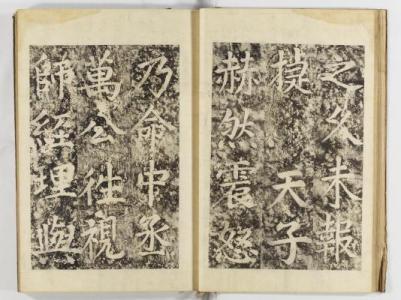 之久未報
㨗 天子
赫然震怒
乃命中丞
萬公往視
師經理與